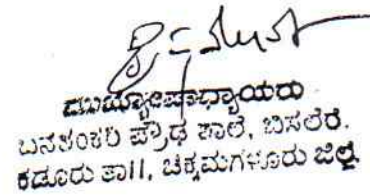 ಮುಖ್ಯೋಪಾಧ್ಯಾಯರು
ಬನಶಂಕರಿ ಪ್ರೌಢ ಶಾಲೆ, ಬಿಸಲೆರೆ.
ಕಡೂರು ತಾ||, ಚಿಕ್ಕಮಗಳೂರು ಜಿಲ್ಲೆ